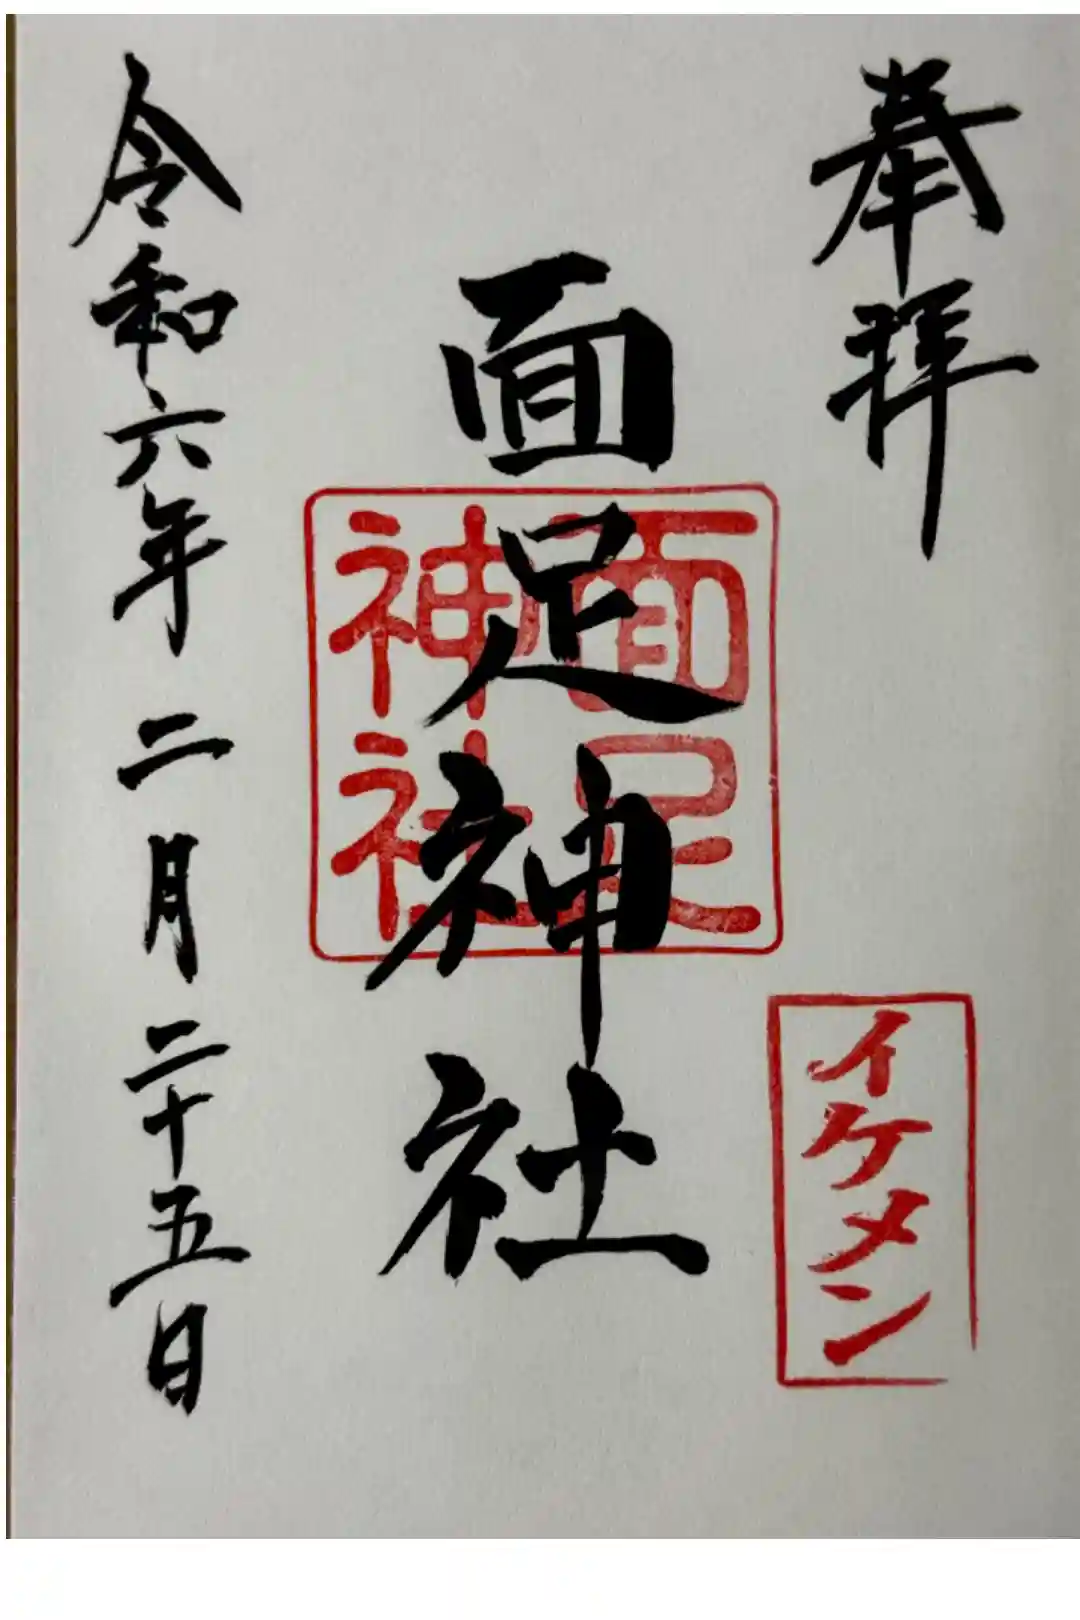 奉拝
イケメン
面足神社
面足
神社
令和六年二月二十五日